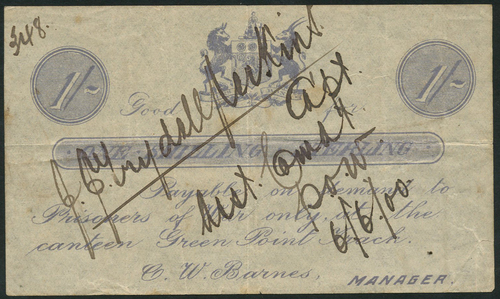 348.
1/- 1/-
Good for
ONE SHILLING STERLING
Payable on Demand to
Prisoners of War only, at the
canteen Green Point Track.
C. W. Barnes,
MANAGER.
Capt.
Asst. Comdt
P.O.W.
6/6/00